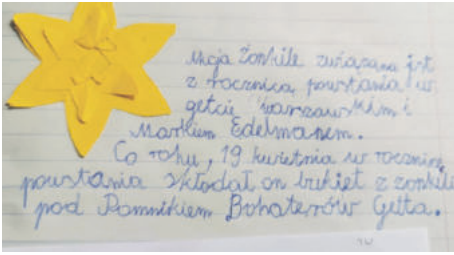 Moja Żonkile związana jest
z rocznicą powstania w
getcie warszawskim i
Markiem Edelmanem.
Co roku, 19 kwietnia w rocznicę
powstania składał on bukiet z żonkile
pod Pomnikiem Bohaterów Getta.